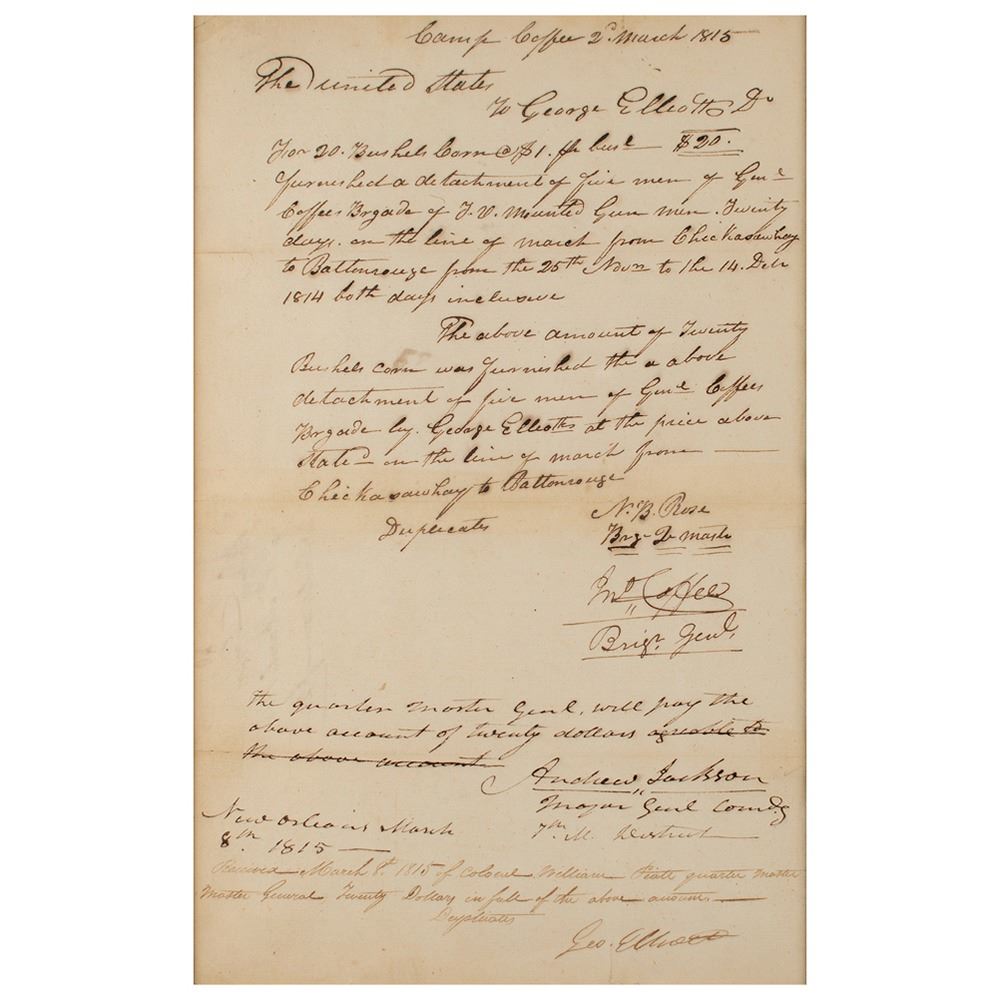 Camp Coffee 2d March 1815
The united States
To George Elliotts Dr
For 20. Bushels Corn @ $1. pr busl $20.
furnished a detachment of five men of Genl
Coffees Brgade of T. V. Mounted Gun men. Twenty
days. on the line of march from Chickasawhay
to Battonrouge from the 25th Novr to the 14. Debr
1814 both days inclusive
The above amount of Twenty
Bushels corn was furnished the a above
detachment of five men of Genl Coffees
Brgade by. George Elliotts at the price above
Stated on the line of march from
Chickasawhay to Battonrouge
Duplicates
N. B. Rose
Brg Qr master
Jno Coffee
Brigr Genl,
the quarter master Genl, will pay the
above account of twenty dollars agreable to
the above account
Andrew Jackson
Major Genl Comdg
7th M. District
New orleans March
8th 1815
Received March 8th 1815 of Colonel William Piatt quarter master
Master General Twenty Dollars in full of the above amount
Duplicates
Geo. Elliott